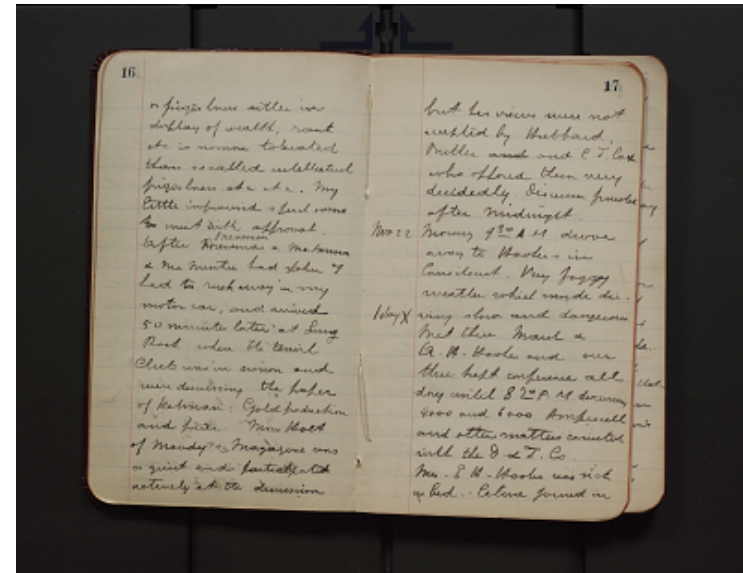 16
display of wealth, rank
etc is no more tolerated
than so called intellectual
little impromptu speech seems
to meet with approval.
Freeman
After a
& had spoken I
had to rush away in my
motor car, and arrived
50 minutes later at Lung
Rock where the
Club was in session and
were discussing the paper
of : Gold production
and Miss Holt
of Moody's Magazine was
a guest and participated
actively at the discussion
17
but his views were not
accepted by Hubbard,
Miller and and C. T. Cox
who opposed them very
decidedly. Discussion finished
after midnight.
Nov 22 Morning 9 30 A M drove
away to Hookers in
Connecticut. Very foggy
weather which made dri-
1 day X ving slow and dangerous
Met there Marsh &
A. H. Hooker and our
three kept conference all
day until 8 P. M discussing
4000 and 6000 Ampere cell
and other matters connected
with the D & T. Co.
Mrs. A. H. Hooker was sick
in bed. Celine joined in